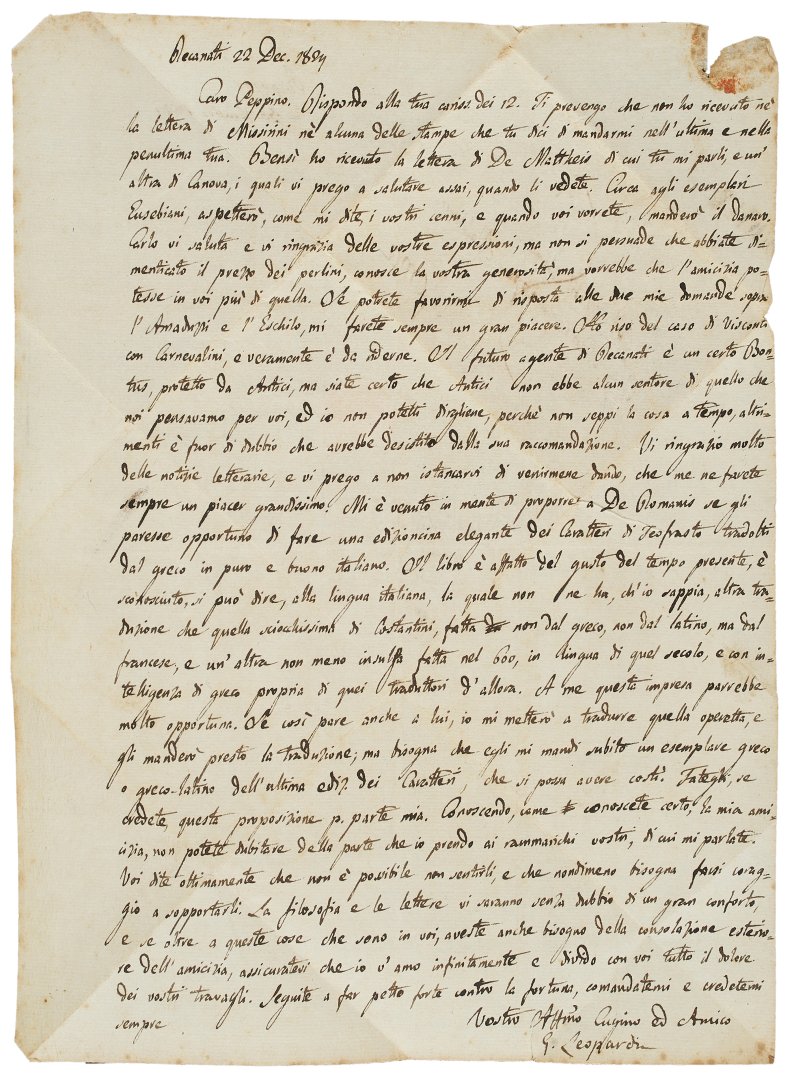 Recanati 22 Dec. 1824
Caro Peppino. Rispondo alla tua cariss. dei 12. Ti prevengo che non ho ricevuto nè
la lettera di Missirini nè alcuna delle stampe che tu dici di mandarmi nell'ultima e nella
penultima tua. Bensì ho ricevuto la lettera di De Mattheis di cui tu mi parli, e un'
altra di Canova, i quali vi prego a salutare assai, quando li vedete. Circa agli esemplari
Eusebiani, aspetterò, come mi dite, i vostri cenni, e quando voi vorrete, manderò il danaro.
Carlo vi saluta e vi ringrazia delle vostre espressioni, ma non si persuade che abbiate di=
menticato il prezzo dei perlini, conosce la vostra generosità, ma vorrebbe che l'amicizia po=
tesse in voi più di quella. Se potrete favorirmi di risposta alle due mie domande sopra
l'Amaduzzi e l'Eschilo, mi farete sempre un gran piacere. Ho riso del caso di Visconti
con Carnevalini, e veramente è da riderne. Il futuro agente di Recanati è un certo Bon=
tus, protetto da Antici, ma siate certo che Antici non ebbe alcun sentore di quello che
noi pensavamo per voi, ed io non potetti dirgliene, perchè non seppi la cosa a tempo, altri=
menti è fuor di dubbio che avrebbe desistito dalla sua raccomandazione. Vi ringrazio molto
delle notizie letterarie, e vi prego a non istancarvi di venirmene dando, che me ne farete
sempre un piacer grandissimo. Mi è venuto in mente di proporre a De Romanis se gli
paresse opportuno di fare una edizioncina elegante dei Caratteri di Teofrasto tradotti
dal greco in puro e buono italiano. Il libro è affatto del gusto del tempo presente, è
sconosciuto, si può dire, alla lingua italiana, la quale non ne ha, ch'io sappia, altra tra=
duzione che quella sciocchissima di Costantini, fatta non dal greco, non dal latino, ma dal
francese, e un'altra non meno insulsa fatta nel 600, in lingua di quel secolo, e con in=
telligenza di greco propria di quei traduttori d'allora. A me questa impresa parrebbe
molto opportuna. Se così pare anche a lui, io mi metterò a tradurre quella operetta, e
gli manderò presto la traduzione; ma bisogna che egli mi mandi subito un esemplare greco
o greco-latino dell'ultima ediz. dei Caratteri, che si possa avere costì. Fategli, se
credete, questa proposizione p. parte mia. Conoscendo, come conoscete certo, la mia ami=
cizia, non potete dubitare della parte che io prendo ai rammarichi vostri, di cui mi parlate.
Voi dite ottimamente che non è possibile non sentirli, e che nondimeno bisogna farsi corag=
gio a sopportarli. La filosofia e le lettere vi saranno senza dubbio di un gran conforto,
e se oltre a queste cose che sono in voi, aveste anche bisogno della consolazione esterio=
re dell'amicizia, assicuratevi che io v'amo infinitamente e divido con voi tutto il dolore
dei vostri travagli. Seguite a far petto forte contro la fortuna, comandatemi e credetemi
sempre Vostro Affmo Cugino ed Amico
G. Leopardi